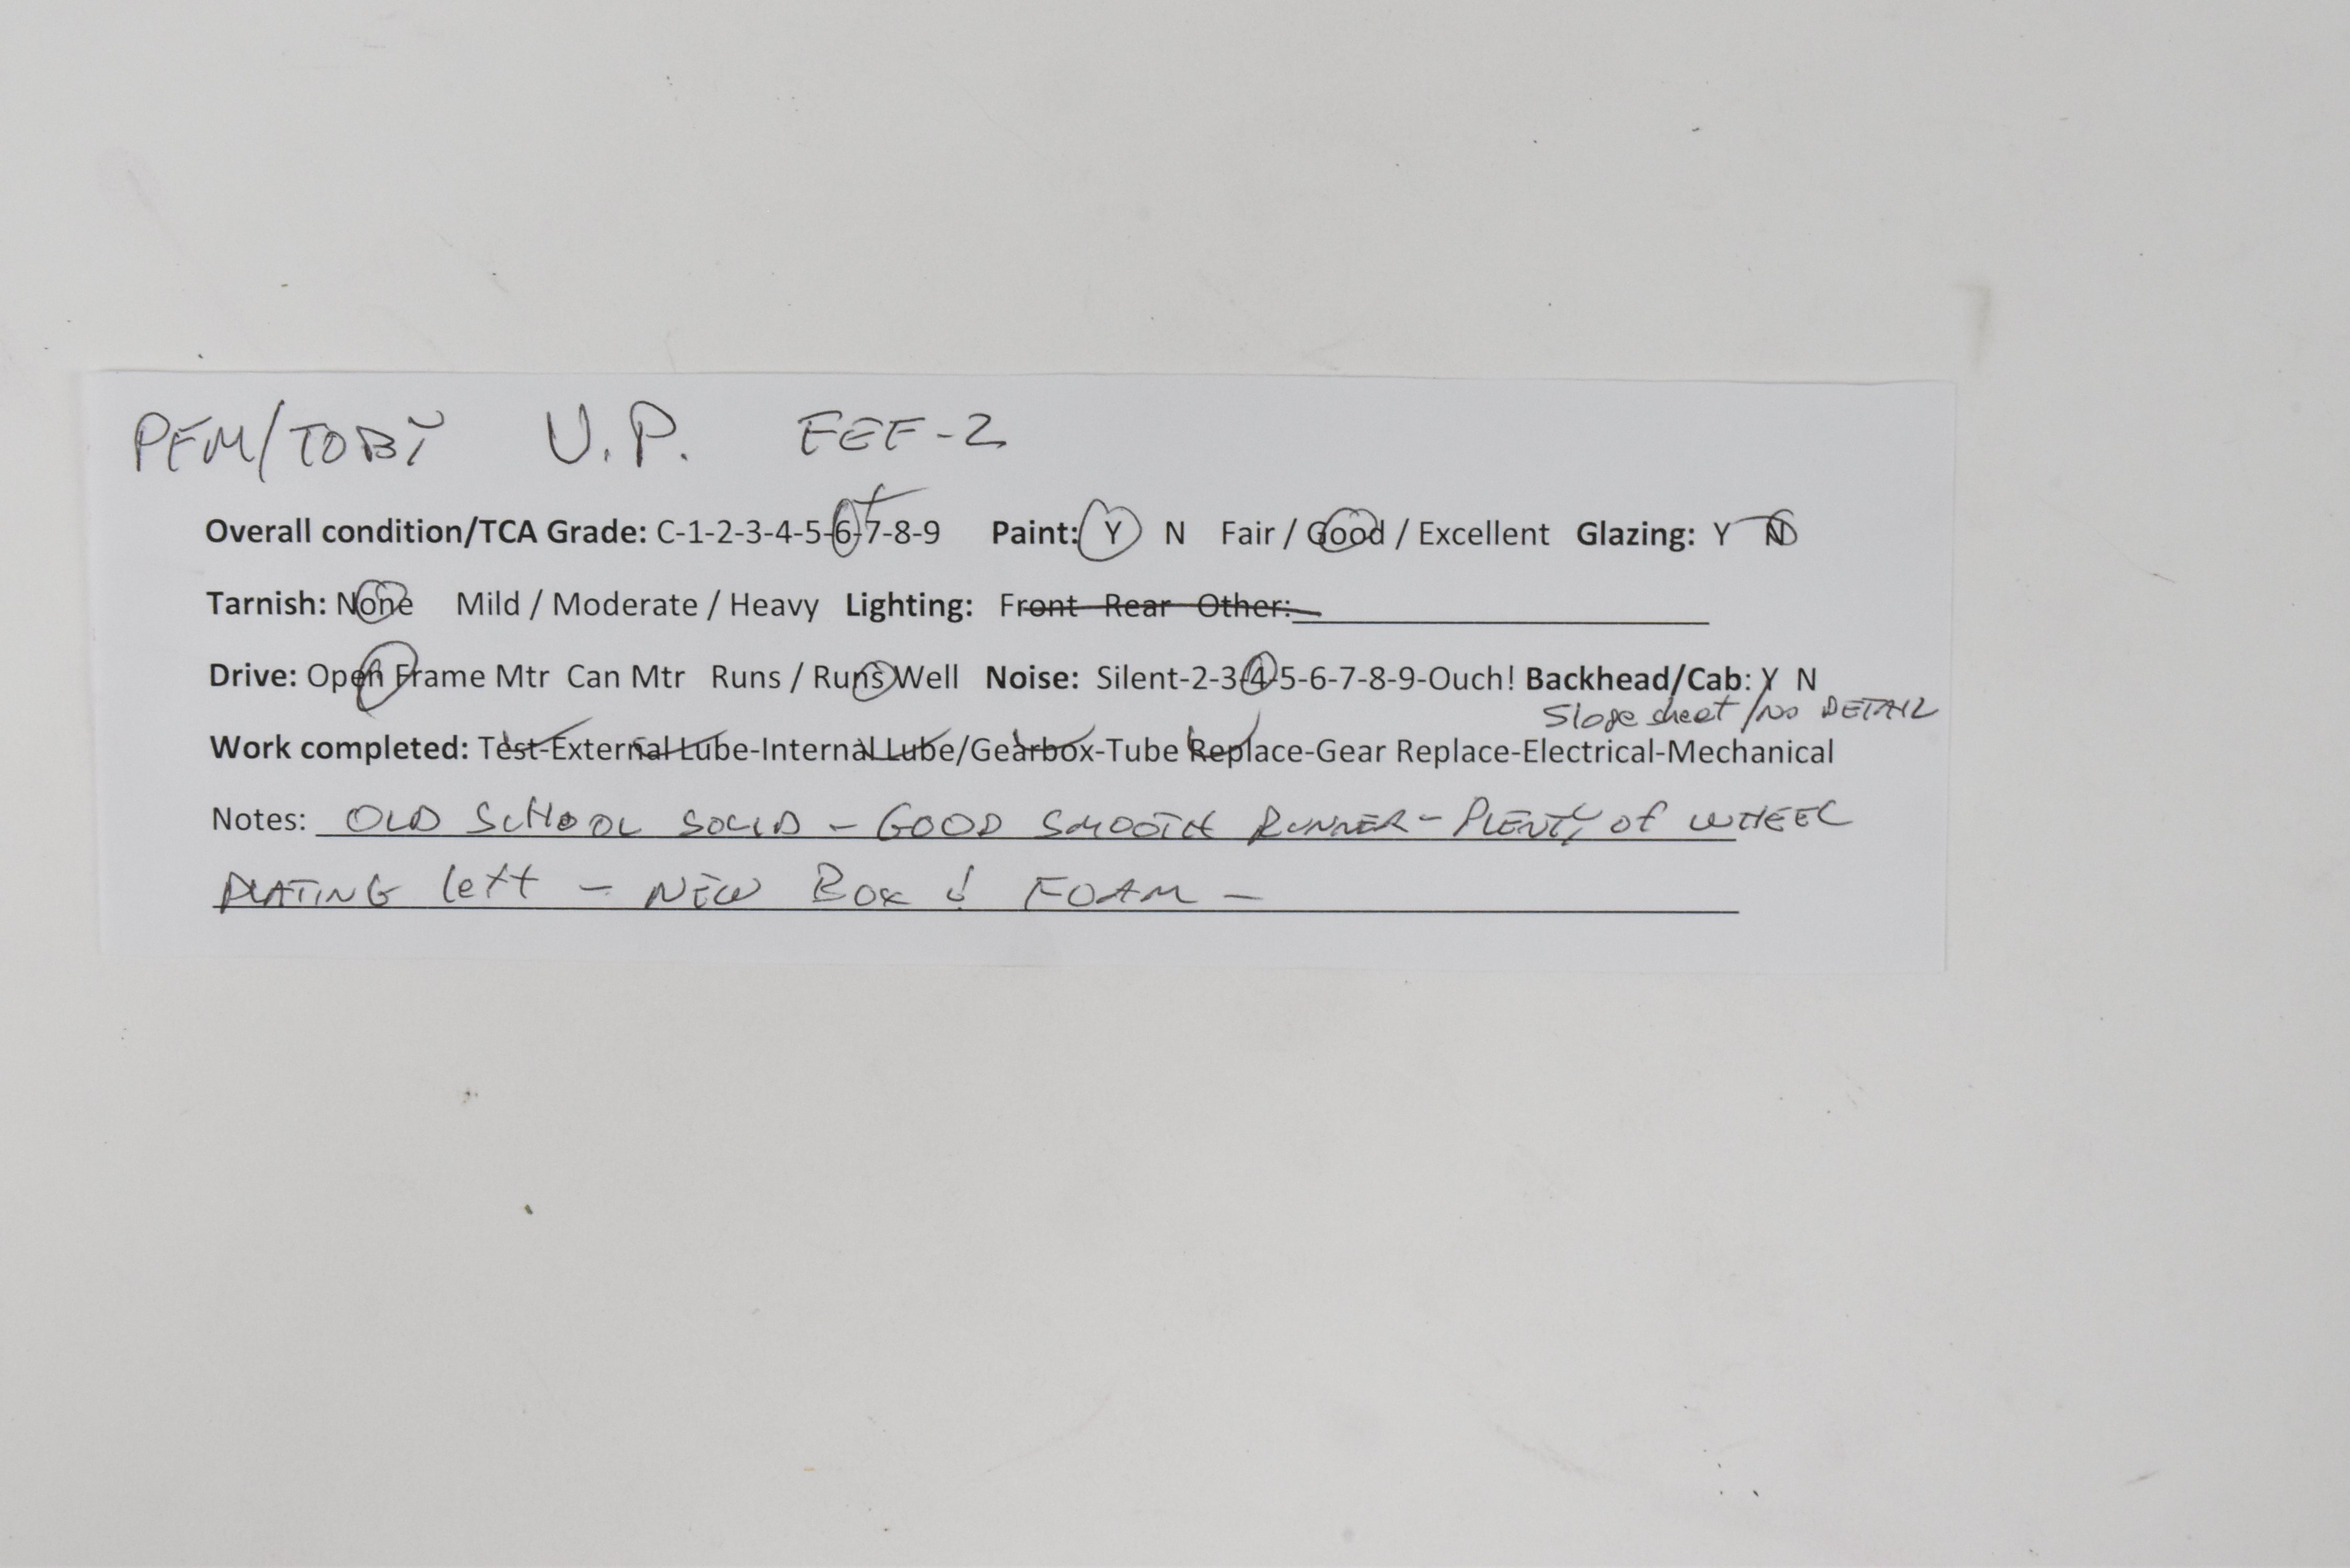 PFM/TOBY U.P. FEF-2
Overall condition/TCA Grade: C-1-2-3-4-5-6-7-8-9 + Paint: Y N Fair / Good / Excellent Glazing: Y N
Tarnish: None Mild / Moderate / Heavy Lighting: Front Rear Other:
Drive: Open Frame Mtr Can Mtr Runs / Runs Well Noise: Silent-2-3-4-5-6-7-8-9-Ouch! Backhead/Cab: Y N
Slope sheet/NO DETAIL
Work completed: Test-External Lube-Internal Lube/Gearbox-Tube Replace-Gear Replace-Electrical-Mechanical
Notes: OLD SCHOOL SOLID - GOOD SMOOTH RUNNER - PLENTY of WHEEL
PLATING left - NEW BOX & FOAM -